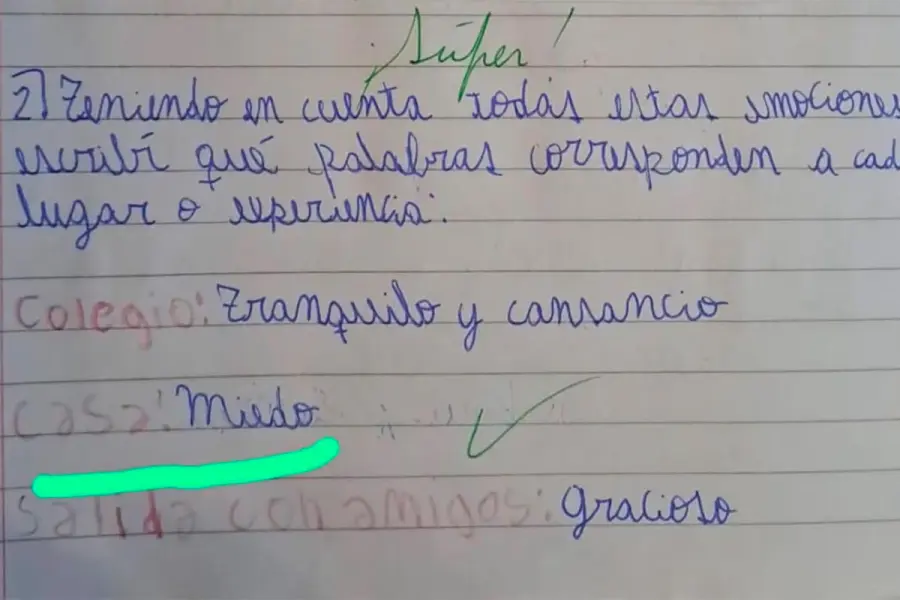 ¡Súper!
2) Teniendo en cuenta todas estas emociones
escribí qué palabras corresponden a cad
lugar o experiencia:
Colegio: Tranquilo y cansancio
Casa: Miedo
Salida con amigos: gracioso